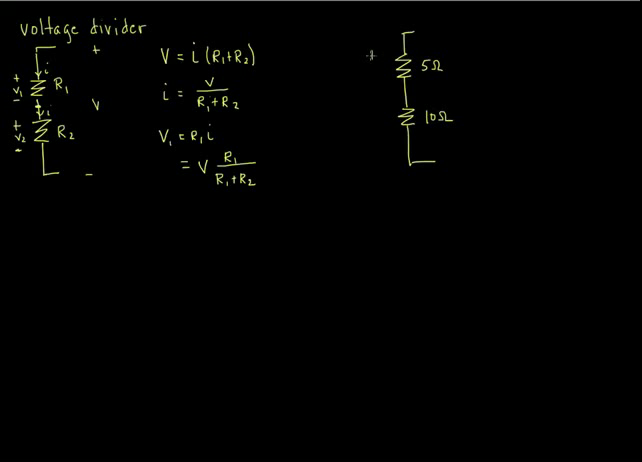 voltage divider
+
i
+
V₁
-
R₁
V
i
+
V₂
-
R₂
-
V = i (R₁+R₂)
i = V / R₁+R₂
V₁ = R₁ i
= V R₁ / R₁+R₂
+
5Ω
10Ω